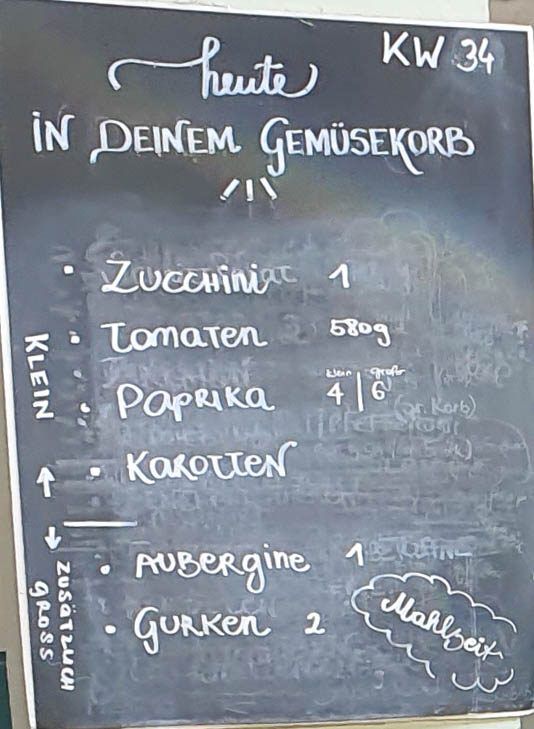 KW 34
heute
IN DEINEM GEMÜSEKORB
• ZUCCHINI 1
• TOMATEN 580g
klein groß
• PAPRIKA 4 | 6
• KAROTTEN
KLEIN
• AUBERGINE 1
• GURKEN 2
ZUSÄTZLICH
GROSS
Mahlzeit